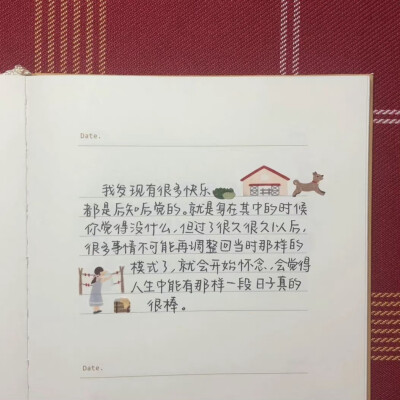 Date.
我发现有很多快乐
都是后知后觉的。就是身在其中的时候
你觉得没什么，但过了很久很久以后，
很多事情不可能再调整回当时那样的
模式了，就会开始怀念、会觉得
人生中能有那样一段日子真的
很棒。
Date.